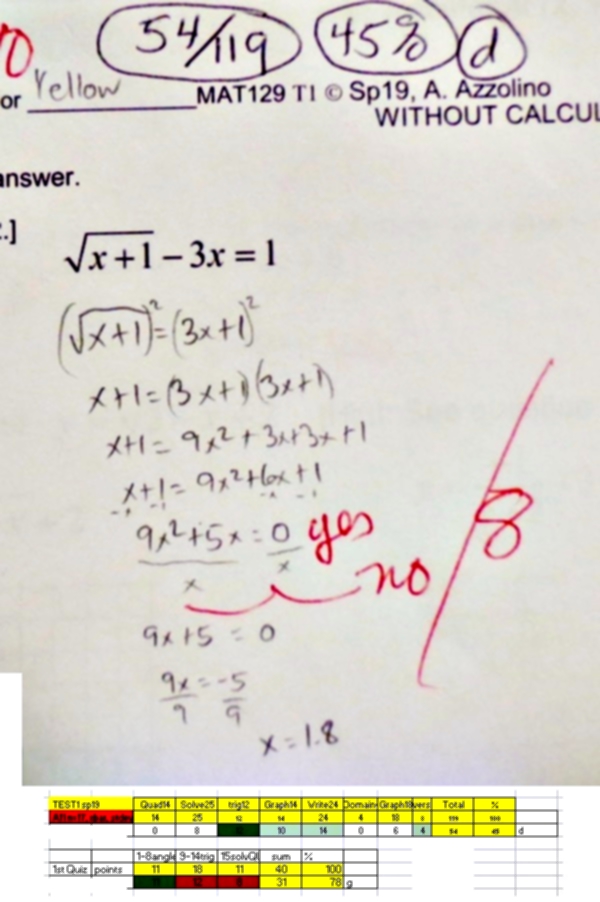 54/119 45% d
or Yellow MAT129 T1 © Sp19, A. Azzolino
WITHOUT CALCUL
answer.
.]
√x+1 − 3x = 1
(√x+1)² = (3x+1)²
x+1 = (3x+1)(3x+1)
x+1 = 9x² + 3x+3x+1
x+1 = 9x²+6x+1
-x -1 -x -1
9x²+5x = 0 yes
x x no
8
9x+5 = 0
9x = -5
9 9
x = 1.8
TEST1 sp19 Quad14 Solve25 trig12 Graph14 Write24 Domain Graph18 vers Total %
14 25 12 14 24 4 18 8 119 100
0 8 10 14 0 6 4 54 45 d
1-8angle 9-14trig 15solvQ sum %
1st Quiz points 11 18 11 40 100
31 78 g